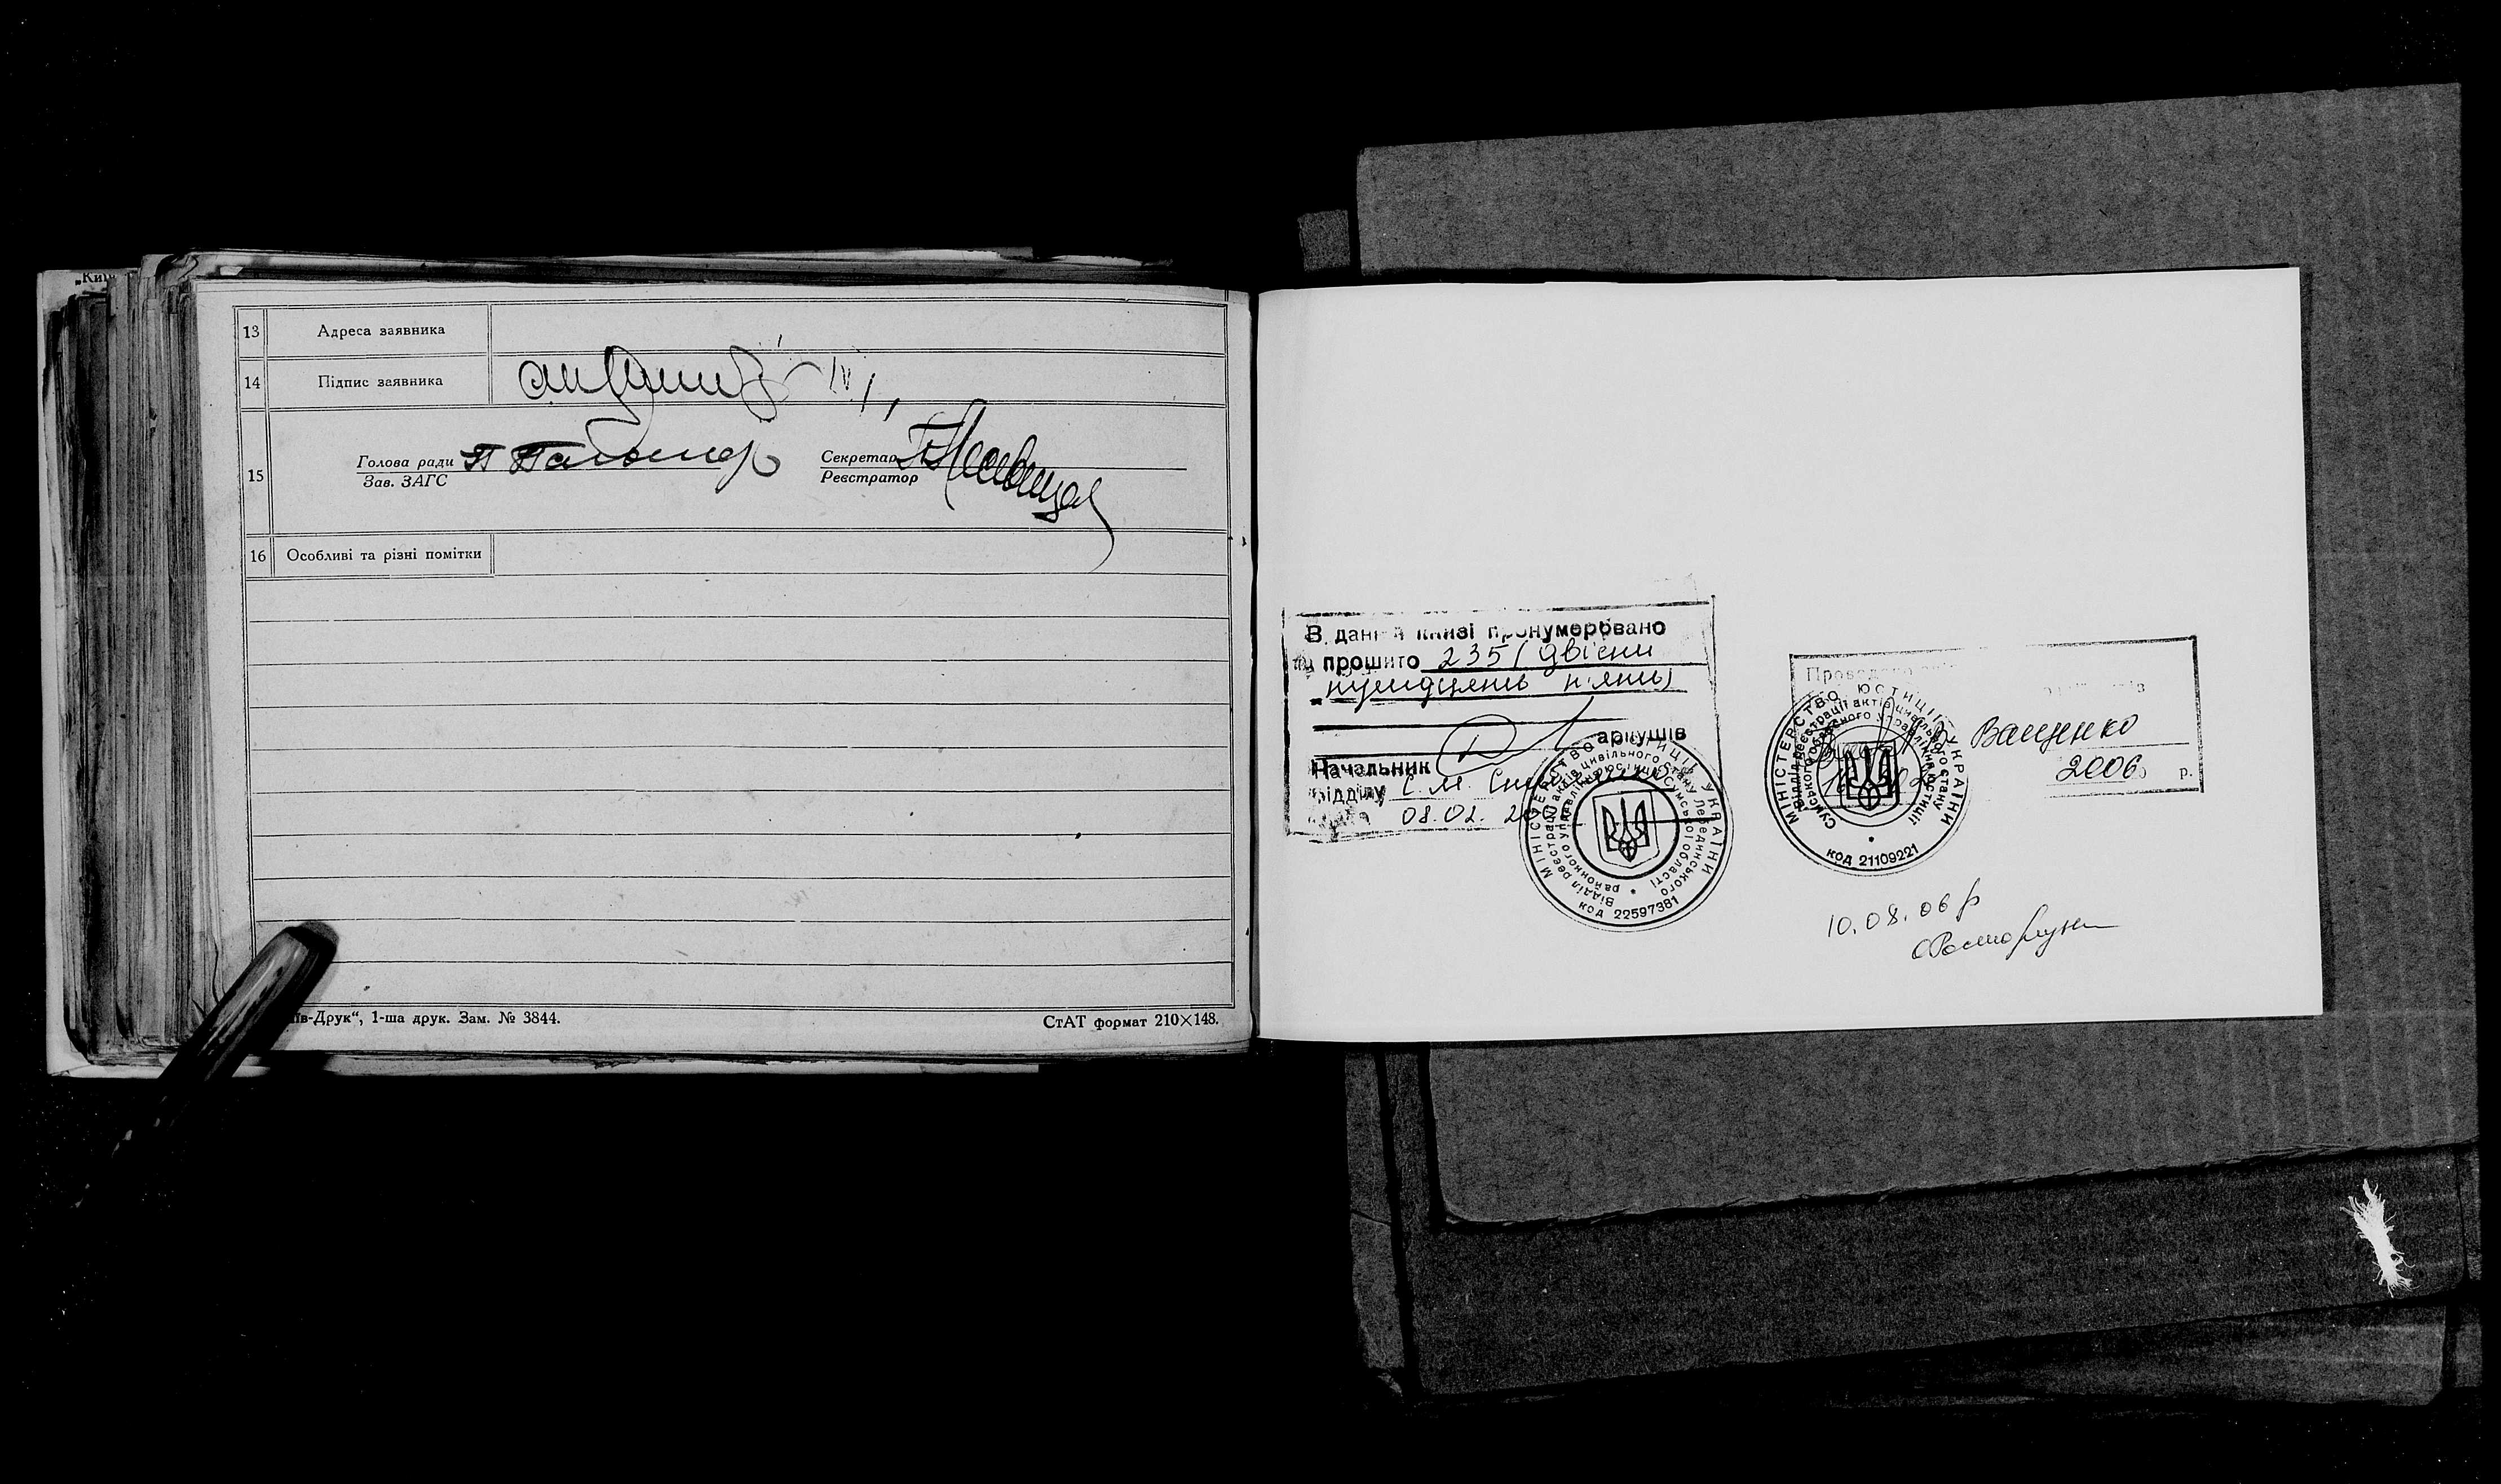 „Київ
13 Адреса заявника
14 Підпис заявника
15 Голова ради
Зав. ЗАГС
Секретар
Реєстратор
16 Особливі та різні помітки
ів-Друк“, 1-ша друк. Зам. № 3844.
СтАТ формат 210×148.
В даній книзі пронумеровано
прошито 235 (двісти
тридцять п'ять)
аркушів
Начальник
відділу С. М.
08.02. 20
МІНІСТЕРСТВО ЮСТИЦІЇ УКРАЇНИ
Відділ реєстрації актів цивільного стану Лебединського
районного управління юстиції Сумської області
код 22597381
Проведено
Ващенко
2006 р.
МІНІСТЕРСТВО ЮСТИЦІЇ УКРАЇНИ
Відділ реєстрації актів цивільного стану
Сумського обласного управління юстиції
код 21109221
10.08.06 р